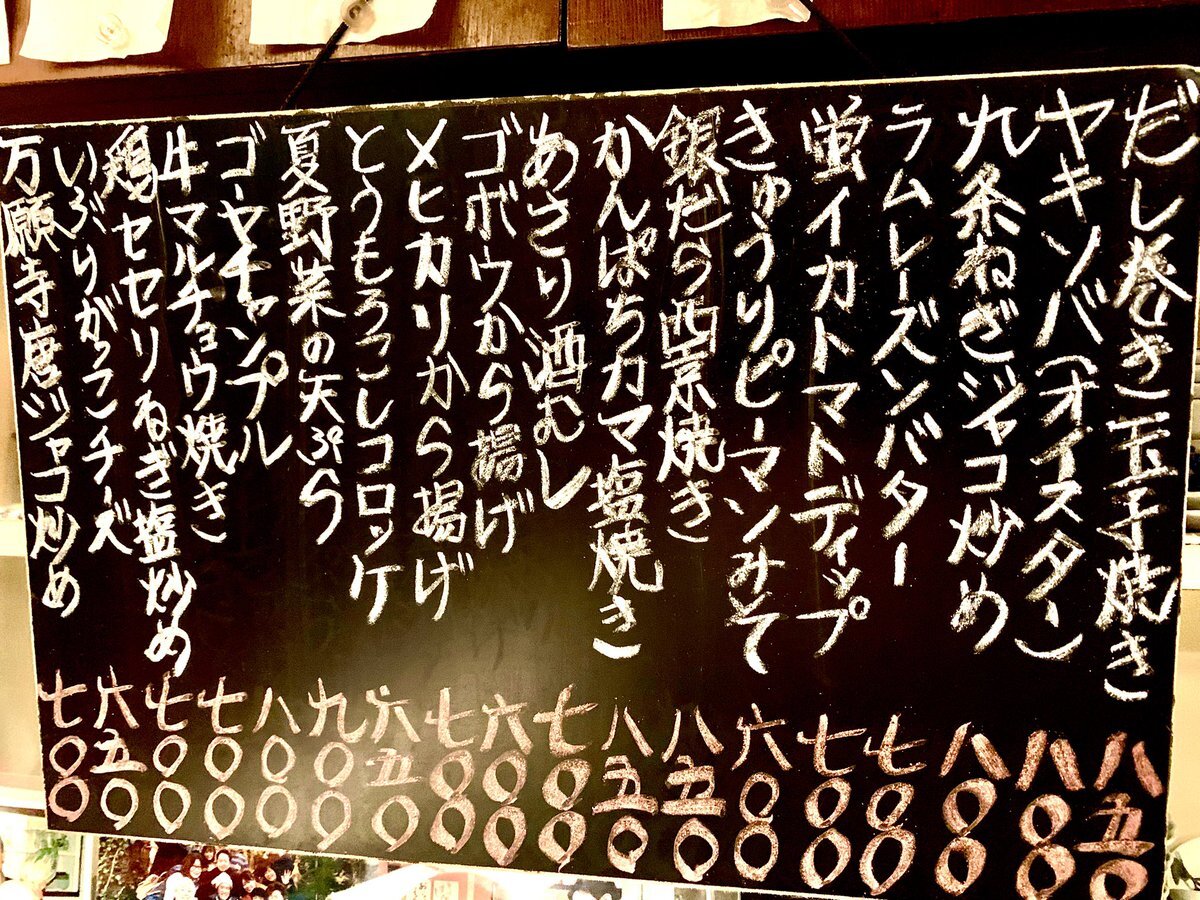 だし巻き玉子焼き 八五〇
ヤキソバ(オイスター) 八〇〇
九条ねぎジャコ炒め 八〇〇
ラムレーズンバター 七〇〇
蛍イカトマトディップ 七〇〇
きゅうりピーマンみそ 六〇〇
銀だら西京焼き 八五〇
かんぱちカマ塩焼き 八五〇
あさり酒むし 七〇〇
ゴボウから揚げ 六〇〇
メヒカリから揚げ 七〇〇
とうもろこしコロッケ 六五〇
夏野菜の天ぷら 九〇〇
ゴーヤチャンプル 八〇〇
牛マルチョウ焼き 七〇〇
鶏セセリねぎ塩炒め 七〇〇
いぶりがっこチーズ 六五〇
万願寺唐ジャコ炒め 七〇〇